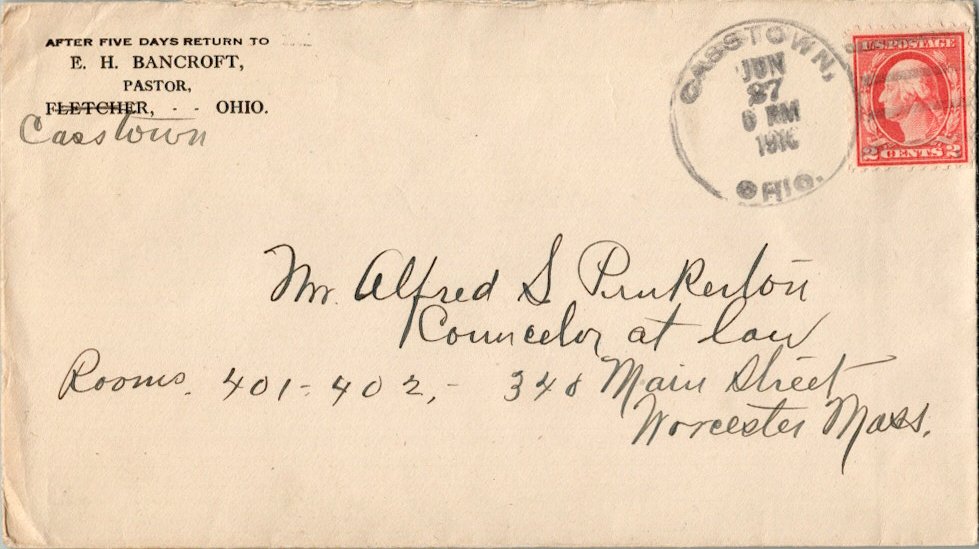 AFTER FIVE DAYS RETURN TO
E. H. BANCROFT,
PASTOR,
FLETCHER, - - OHIO.
Casstown
CASSTOWN,
JUN
27
6 PM
OHIO.
U.S. POSTAGE
2 CENTS 2
Mr. Alfred S Pinkerton
Councelor at law
Rooms. 401-402,- 340 Main Street
Worcester Mass.